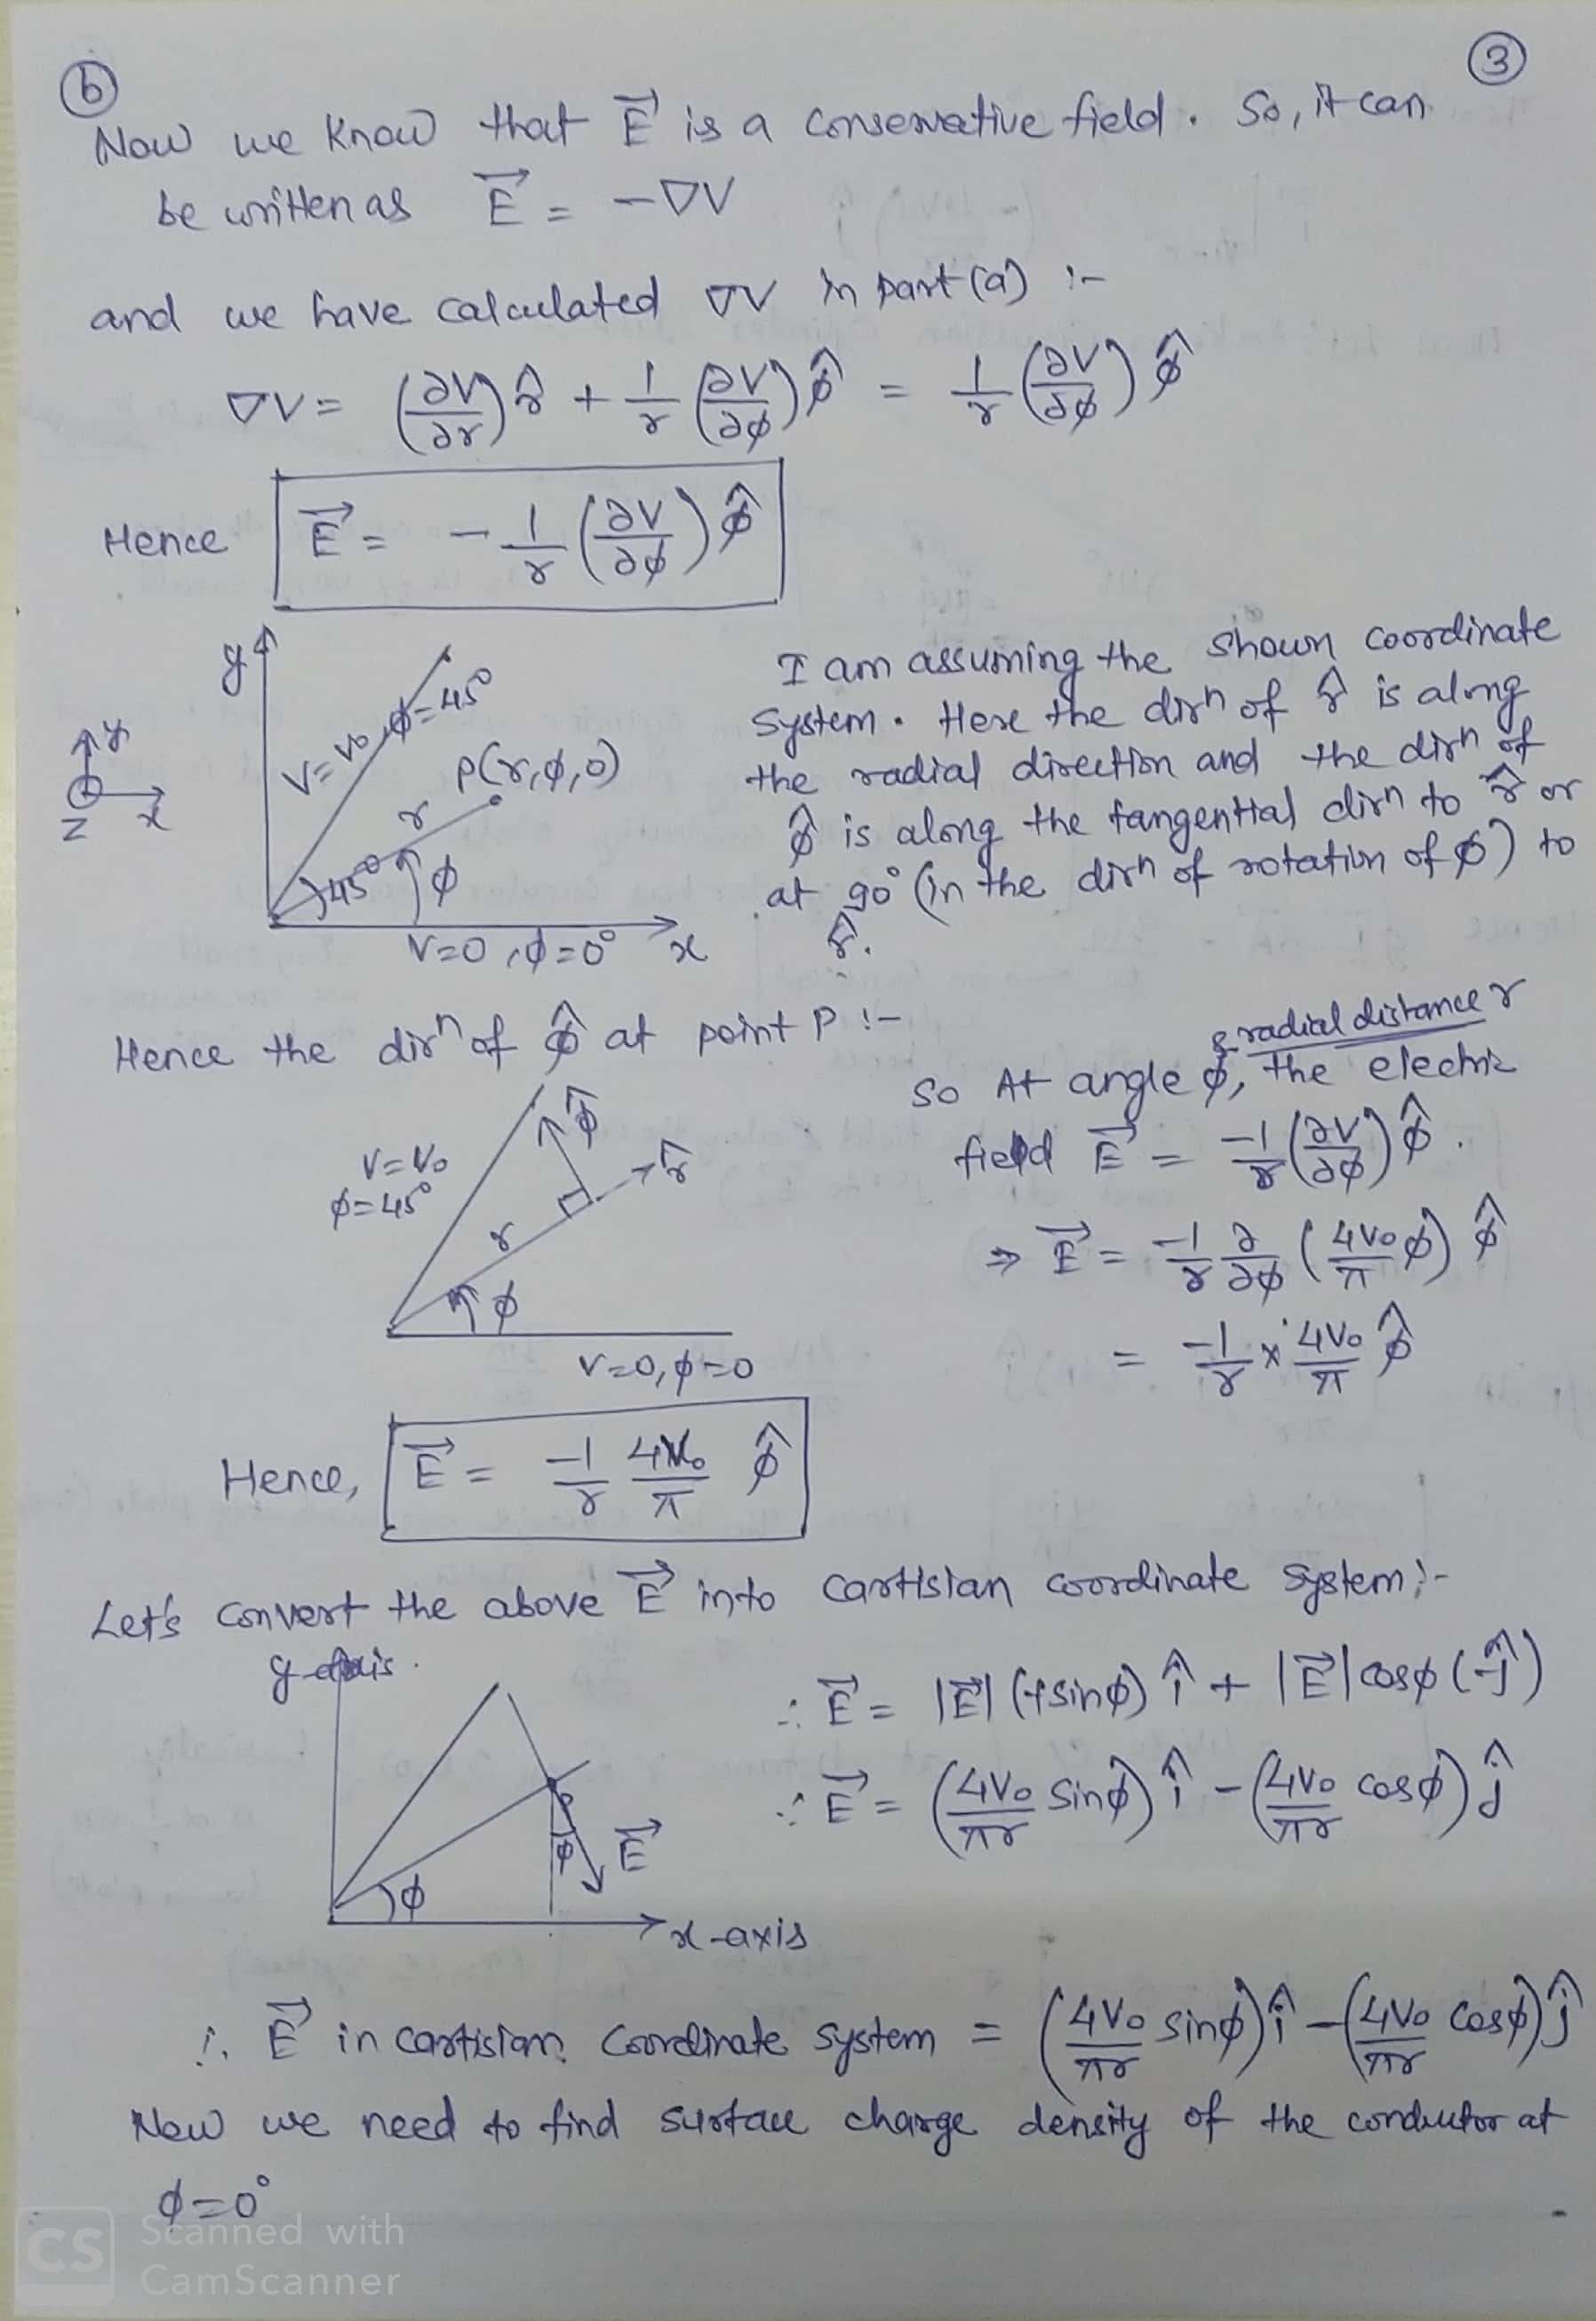 (b)
(3)
Now we know that E⃗ is a conservative field. So, it can
be written as E⃗ = -∇V
and we have calculated ∇V in part (a) :-
∇V = (∂V/∂r) r̂ + 1/r (∂V/∂φ) φ̂ = 1/r (∂V/∂φ) φ̂
Hence E⃗ = - 1/r (∂V/∂φ) φ̂
y
V=V₀, φ=45°
P(r,φ,0)
r
45°
φ
V=0, φ=0°
x
y
x
z
I am assuming the shown coordinate
system. Here the dirn of r̂ is along
the radial direction and the dirn of
φ̂ is along the tangential dirn to r̂ or
at 90° (in the dirn of rotation of φ) to
r̂.
Hence the dirn of φ̂ at point P :-
V=V₀
φ=45°
φ̂
r̂
r
φ
V=0, φ=0
& radial distance r
so At angle φ, the electric
field E⃗ = -1/r (∂V/∂φ) φ̂.
⇒ E⃗ = -1/r ∂/∂φ (4V₀/π φ) φ̂
= -1/r × 4V₀/π φ̂
Hence, E⃗ = -1/r 4V₀/π φ̂
Let's convert the above E⃗ into cartisian coordinate system:-
y-axis.
P
φ
E⃗
φ
x-axis
∴ E⃗ = |E⃗| (+sinφ) î + |E⃗| cosφ (-ĵ)
∴ E⃗ = (4V₀/πr sinφ) î - (4V₀/πr cosφ) ĵ
∴ E⃗ in cartisian coordinate system = (4V₀/πr sinφ) î - (4V₀/πr cosφ) ĵ
Now we need to find surface charge density of the conductor at
φ=0°
CS
Scanned with
CamScanner